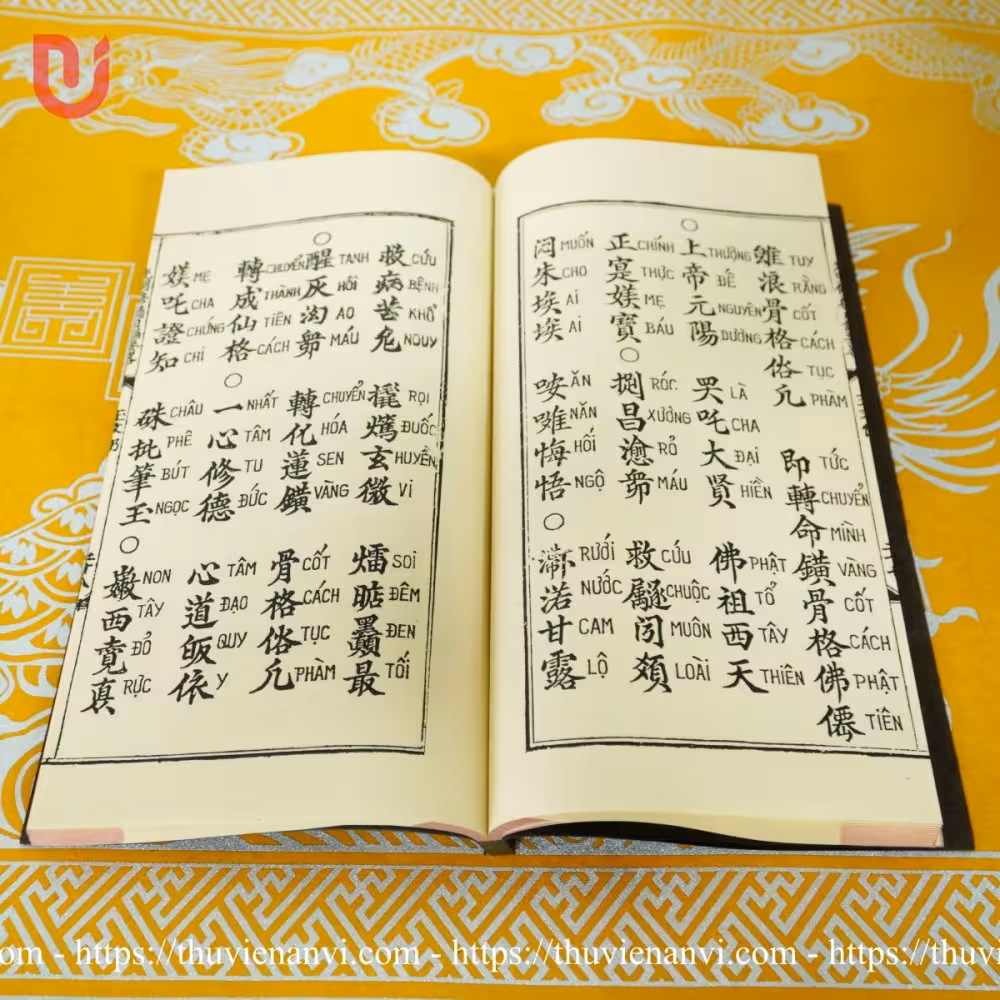 雖 TUY 浪 RẰNG 骨 CỐT 格 CÁCH 俗 TỤC 凡 PHÀM
即 TỨC 轉 CHUYỂN 命 MÌNH 鐄 VÀNG 骨 CỐT 格 CÁCH 佛 PHẬT 僊 TIÊN
○ 上 THƯỢNG 帝 ĐẾ 元 NGUYÊN 陽 DƯƠNG
LÀ 吒 CHA 大 ĐẠI 賢 HIỀN
佛 PHẬT 祖 TỔ 西 TÂY 天 THIÊN
正 CHÍNH 寔 THỰC 媄 MẸ 寶 BÁU
○ 捌 RÓC 昌 XƯƠNG RỎ MÁU
救 CỨU CHUỘC MUÔN 類 LOÀI
悶 MUỐN 朱 CHO 埃 AI 埃 AI
咹 ĂN NĂN 悔 HỐI 悟 NGỘ
○ RƯỚI 渃 NƯỚC 甘 CAM 露 LỘ
救 CỨU 病 BỆNH 苦 KHỔ 危 NGUY
RỌI ĐUỐC 玄 HUYỀN 微 VI
SOI ĐÊM ĐEN 最 TỐI
○ 醒 TANH 灰 HÔI AO MÁU
轉 CHUYỂN 化 HÓA 蓮 SEN 鐄 VÀNG
骨 CỐT 格 CÁCH 俗 TỤC 凡 PHÀM
轉 CHUYỂN 成 THÀNH 仙 TIÊN 格 CÁCH
○ 一 NHẤT 心 TÂM 修 TU 德 ĐỨC
心 TÂM 道 ĐẠO 皈 QUY 依 Y
媄 MẸ 吒 CHA 證 CHỨNG 知 CHI
硃 CHÂU 批 PHÊ 筆 BÚT 玉 NGỌC
○ NON 西 TÂY ĐỎ RỰC
om - https://thuvienanvi.com - https://thuvienanvi.com - https://thuvienanvi.co